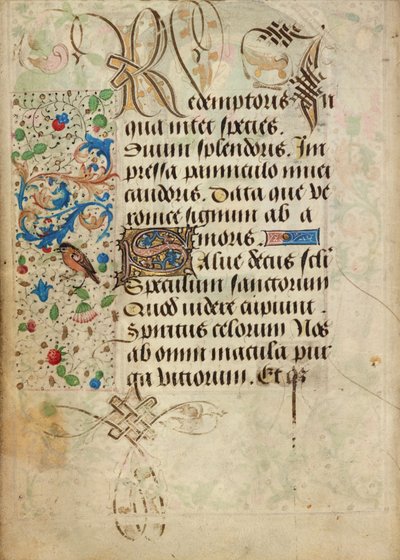 Redemptoris In
qua nitet species.
Diuini splendoris. Im
pressa panniculo niuei
candoris. Data que ve
ronice signum ob a
moris.
Salue decus scli
Speculum sanctorum
Quod uidere cupiunt
Spiritus celorum Nos
ab omni macula pur
ga vitiorum. Et